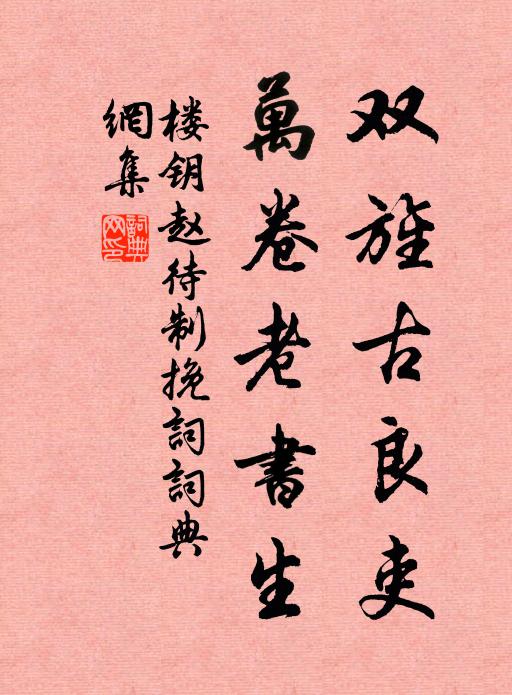 双旌古良吏
萬卷老書生
楼钥赵待制挽詞詞典
網集
詞典
网印